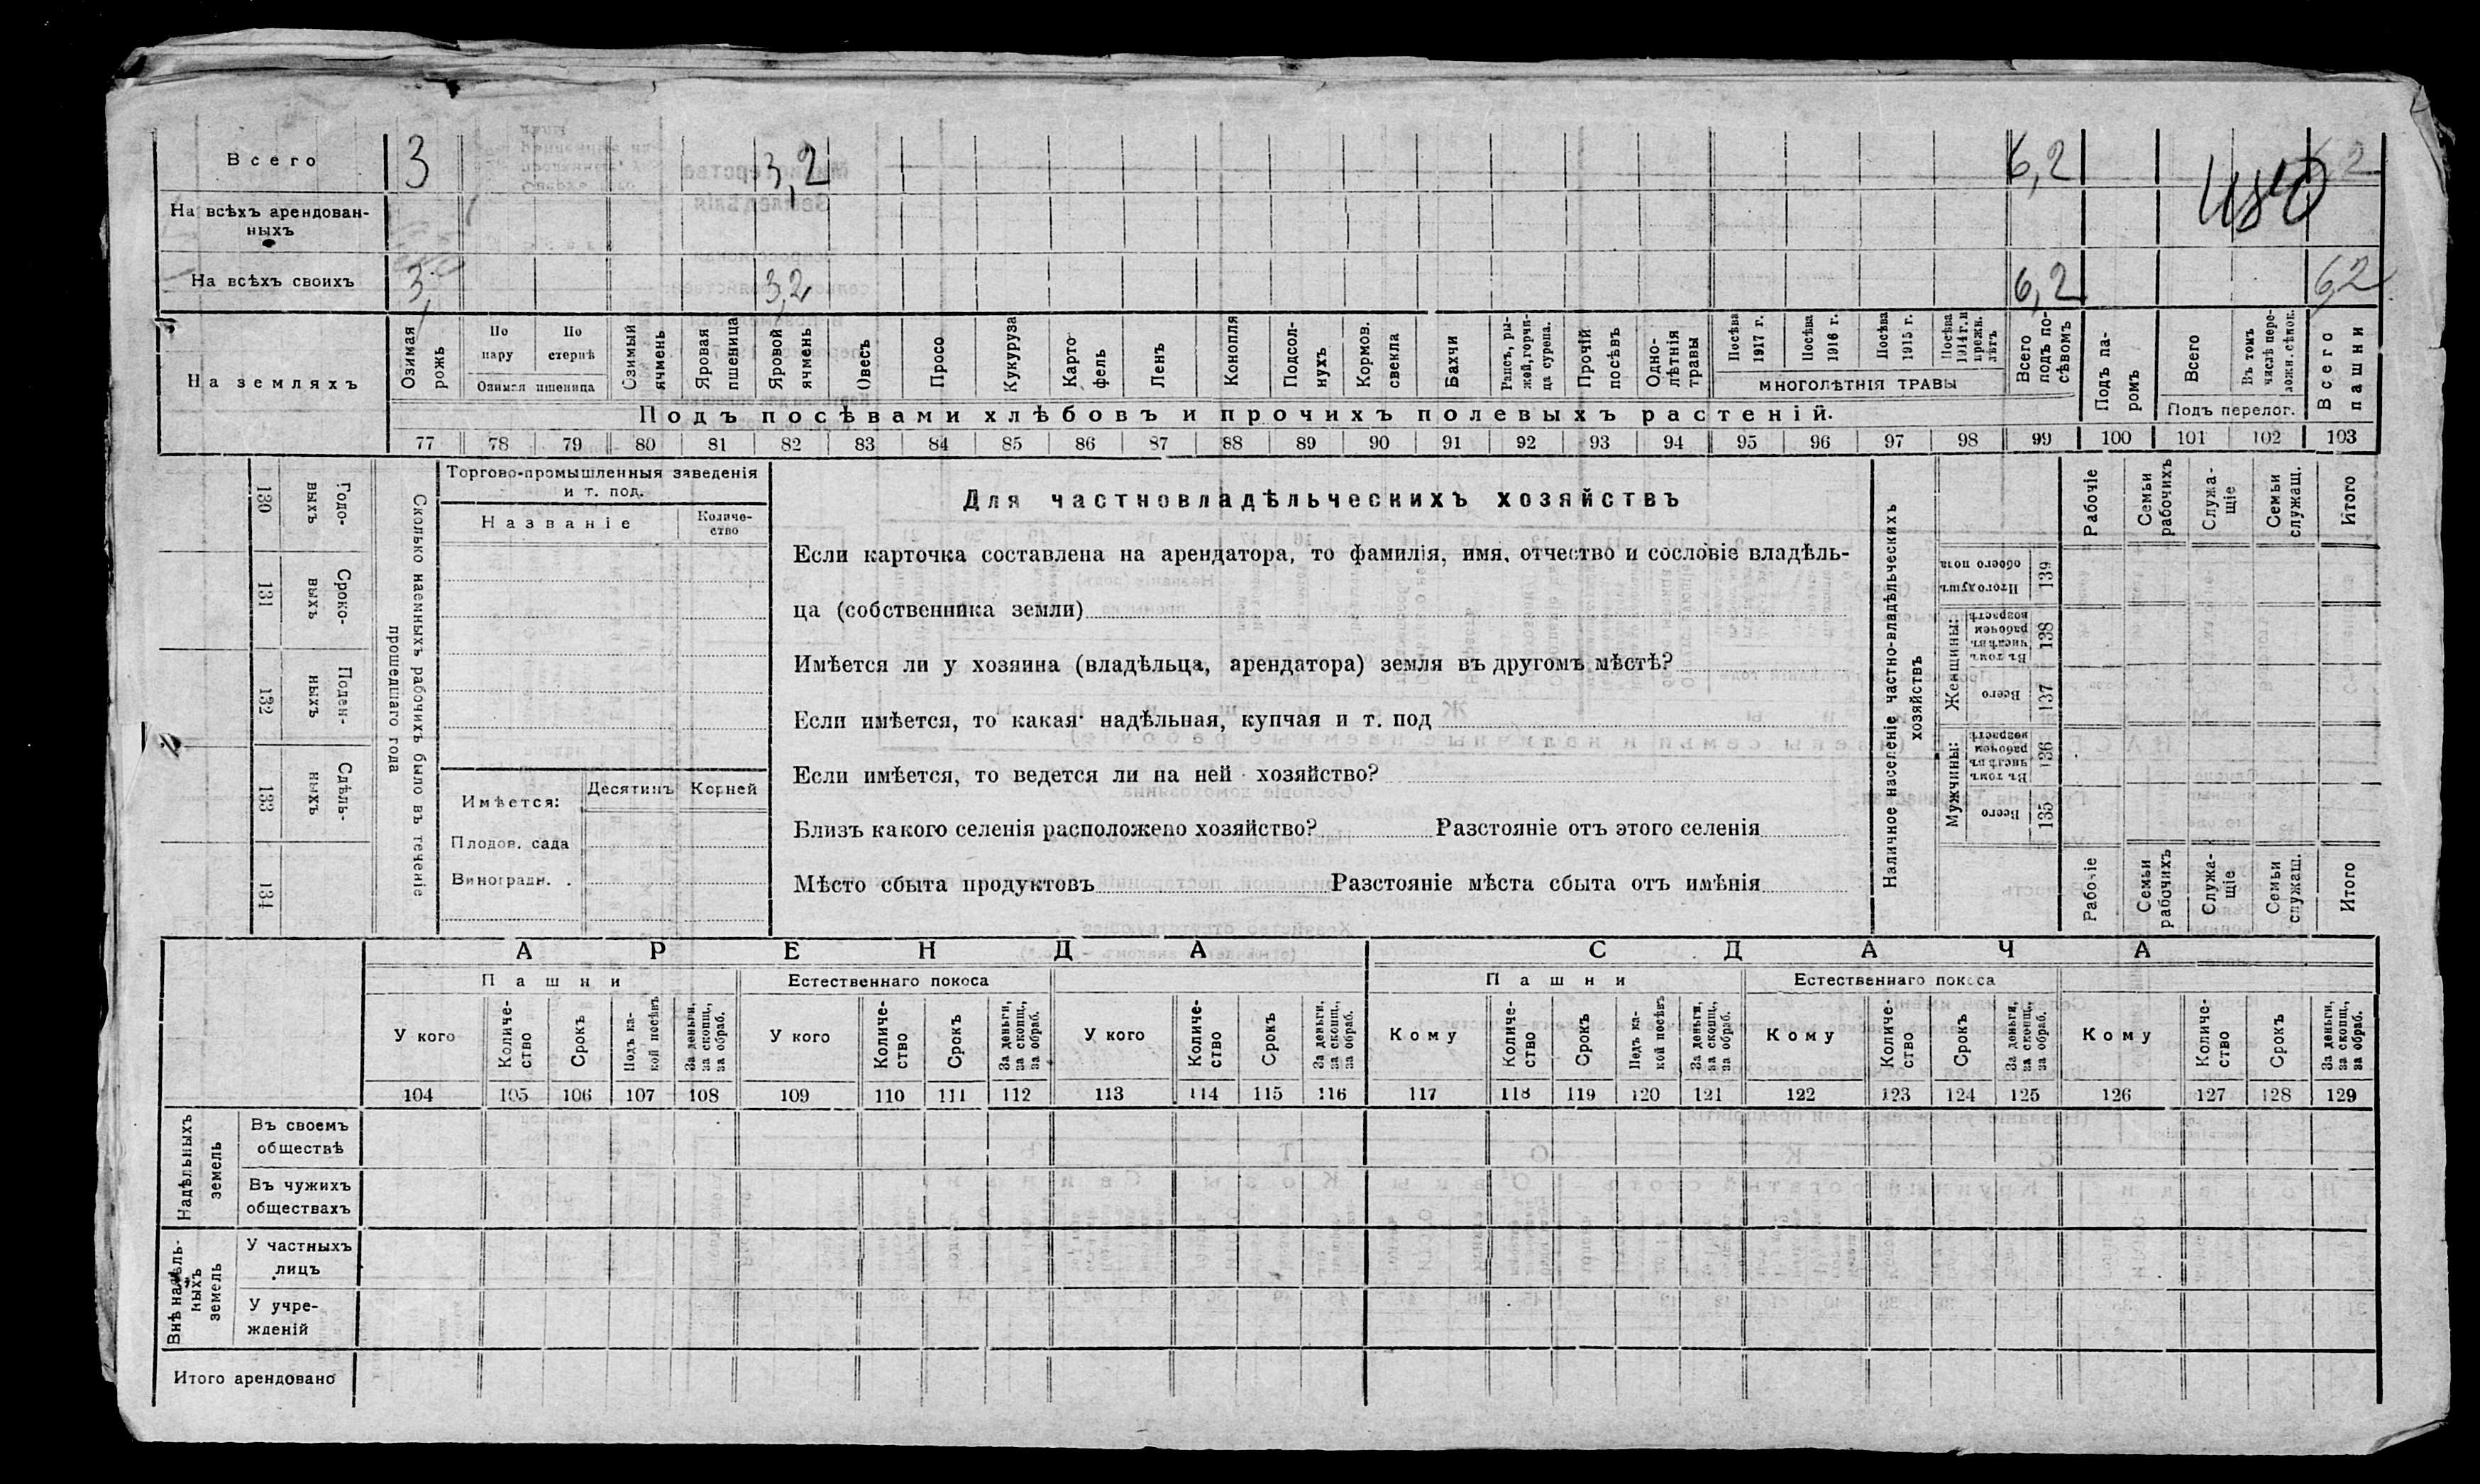 Всего 3 3,2 6,2 6,2
480
На всѣхъ арендован-
ныхъ
На всѣхъ своихъ 3, 3,2 6,2 6,2
На земляхъ
Озимая рожь
По пару
По стернѣ
Озимая пшеница
Озимый ячмень
Яровая пшеница
Яровой ячмень
Овесъ
Просо
Кукуруза
Карто-
фель
Ленъ
Конопля
Подсол-
нухъ
Кормов. свекла
Бахчи
Рапсъ, ры-
жей, горчи-
ца сурепа.
Прочій посѣвъ
Одно-
лѣтнія
травы
Посѣва 1917 г.
Посѣва 1916 г.
Посѣва 1915 г.
Посѣва 1914 г. и прежн. лѣтъ
МНОГОЛѢТНІЯ ТРАВЫ
Всего подъ по-
сѣвомъ
Подъ па-
ромъ
Всего
Въ томъ числѣ пере-
ложн. сѣнок.
Подъ перелог.
Всего пашни
Подъ посѣвами хлѣбовъ и прочихъ полевыхъ растеній.
77 78 79 80 81 82 83 84 85 86 87 88 89 90 91 92 93 94 95 96 97 98 99 100 101 102 103
130 Годо-
выхъ
131 Сроко-
выхъ
132 Поден-
ныхъ
133 Сдѣль-
ныхъ
134
Сколько наемныхъ рабочихъ было въ теченіе
прошедшаго года
Торгово-промышленныя заведенія
и т. под.
Названіе
Количе-
ство
Имѣется:
Десятинъ Корней
Плодов. сада
Виноградн. .
Для частновладѣльческихъ хозяйствъ
Если карточка составлена на арендатора, то фамилія, имя, отчество и сословіе владѣль-
ца (собственника земли)
Имѣется ли у хозяина (владѣльца, арендатора) земля въ другомъ мѣстѣ?
Если имѣется, то какая· надѣльная, купчая и т. под
Если имѣется, то ведется ли на ней хозяйство?
Близъ какого селенія расположено хозяйство? Разстояніе отъ этого селенія
Мѣсто сбыта продуктовъ Разстояніе мѣста сбыта отъ имѣнія
Наличное населеніе частно-владѣльческихъ
хозяйствъ
Рабочіе
Семьи рабочихъ
Служа-
щіе
Семьи служащ.
Итого
Итого душъ
обоего пола
139
Женщины:
Въ томъ
числѣ въ
рабочем
возрастѣ
138
Всего
137
Мужчины:
Въ томъ
числѣ въ
рабочем
возрастѣ
136
Всего
135
Рабочіе
Семьи рабочихъ
Служа-
щіе
Семьи служащ.
Итого
АРЕНДА СДАЧА
Пашни Естественнаго покоса Пашни Естественнаго покоса
У кого
Количе-
ство
Срокъ
Подъ ка-
кой посѣвъ
За деньги,
за скопщ.,
за обраб.
У кого
Количе-
ство
Срокъ
За деньги,
за скопщ.,
за обраб.
У кого
Количе-
ство
Срокъ
За деньги,
за скопщ.,
за обраб.
Кому
Количе-
ство
Срокъ
Подъ ка-
кой посѣвъ
За деньги,
за скопщ.,
за обраб.
Кому
Количе-
ство
Срокъ
За деньги,
за скопщ.,
за обраб.
Кому
Количе-
ство
Срокъ
За деньги,
за скопщ.,
за обраб.
104 105 106 107 108 109 110 111 112 113 114 115 116 117 118 119 120 121 122 123 124 125 126 127 128 129
Надѣльныхъ
земель
Въ своемъ
обществѣ
Въ чужихъ
обществахъ
Внѣ надѣль-
ныхъ
земель
У частныхъ
лицъ
У учре-
жденій
Итого арендовано